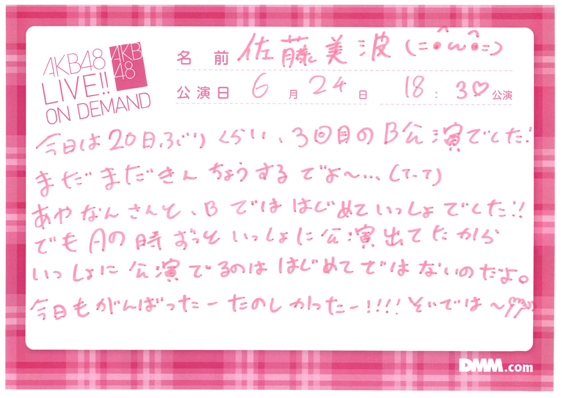 AKB48
LIVE!!
ON DEMAND
AKB
48
名前 佐藤美波(=•̂ω•̂=)
公演日 6月24日 18:30公演
今日は20日ぶりくらい、3回目のB公演でした!
まだまだきんちょうするでよ〜…(T-T)
あやなんさんと、Bではじめていっしょでした!!
でもAの時ずっといっしょに公演出てたから
いっしょに公演でるのははじめてではないのだよ。
今日もがんばったーたのしかったー!!!!ぞいでは〜
DMM.com